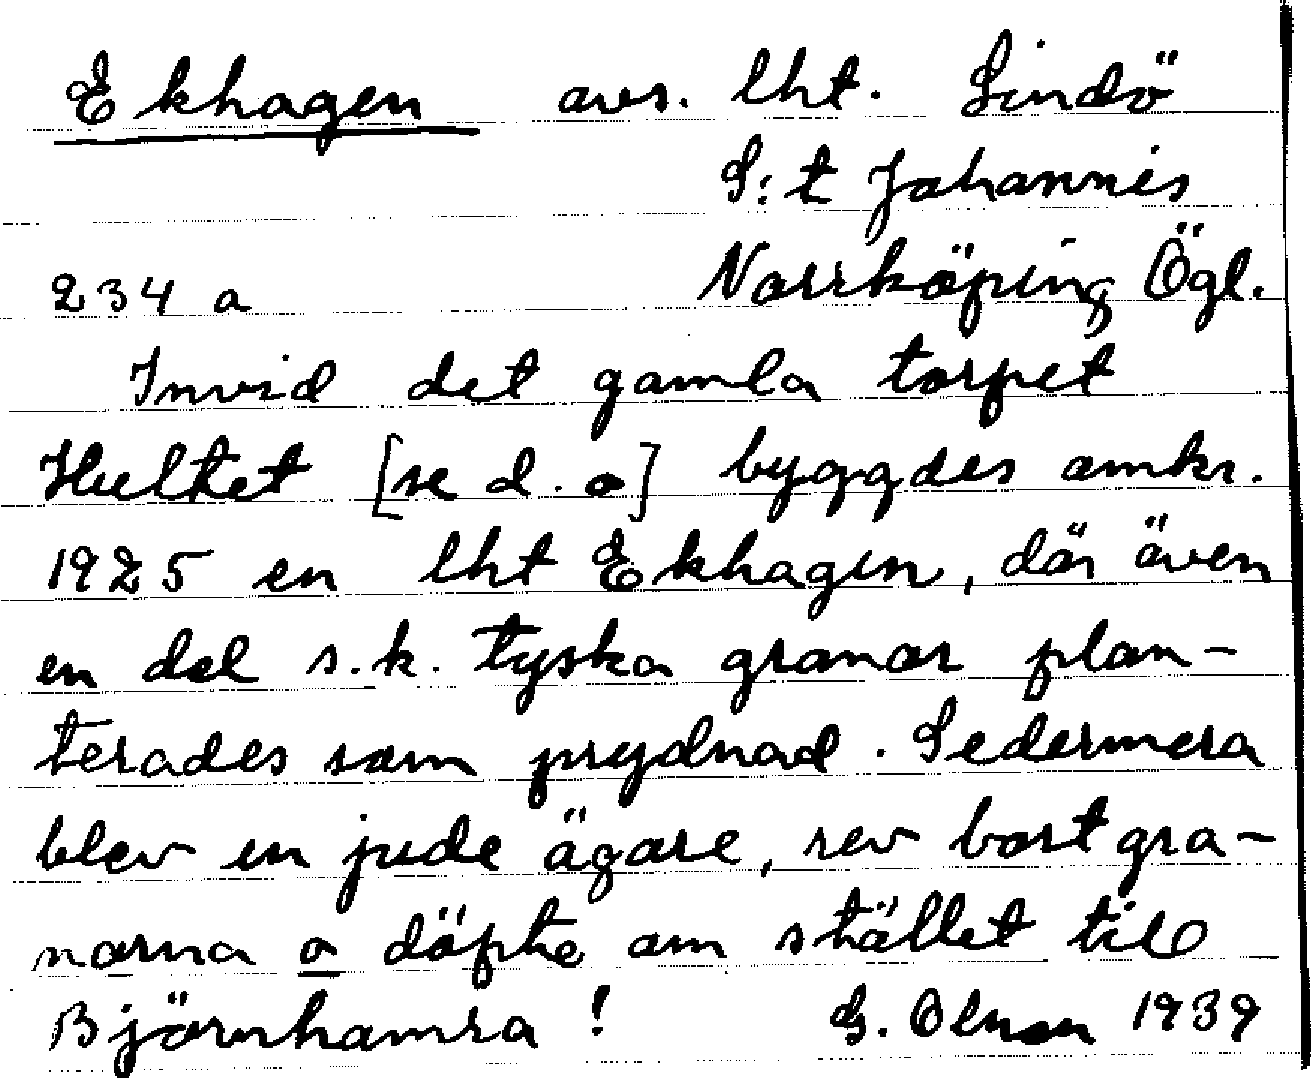 Ekhagen avs. lht. Lindö
S:t Johannis
234 a Norrköping Ögl.
Invid det gamla torpet
Hultet [se d. o] byggdes omkr.
1925 en lht Ekhagen, där även
en del s.k. tyska granar plan-
terades som prydnad. Sedermera
blev en jude ägare, rev bort gra-
narna o döpte om stället till
Björnhamra! G. Olsson 1939